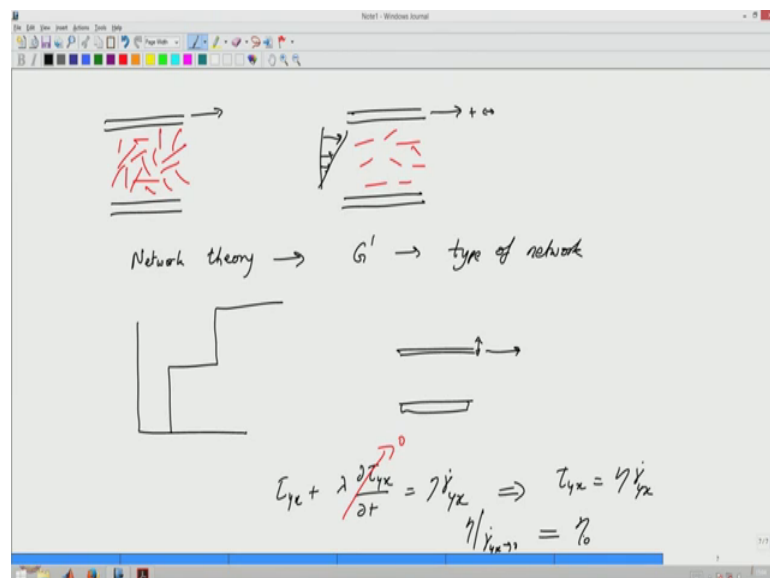 Note1 - Windows Journal
File Edit View Insert Actions Tools Help
Page Width
B I
→ + ↔
Network theory → G' → type of network
τyx + λ ∂τyx/∂t = ηγ̇yx ⇒ τyx = ηγ̇yx
0
η|γ̇yx→0 = η₀
7/7